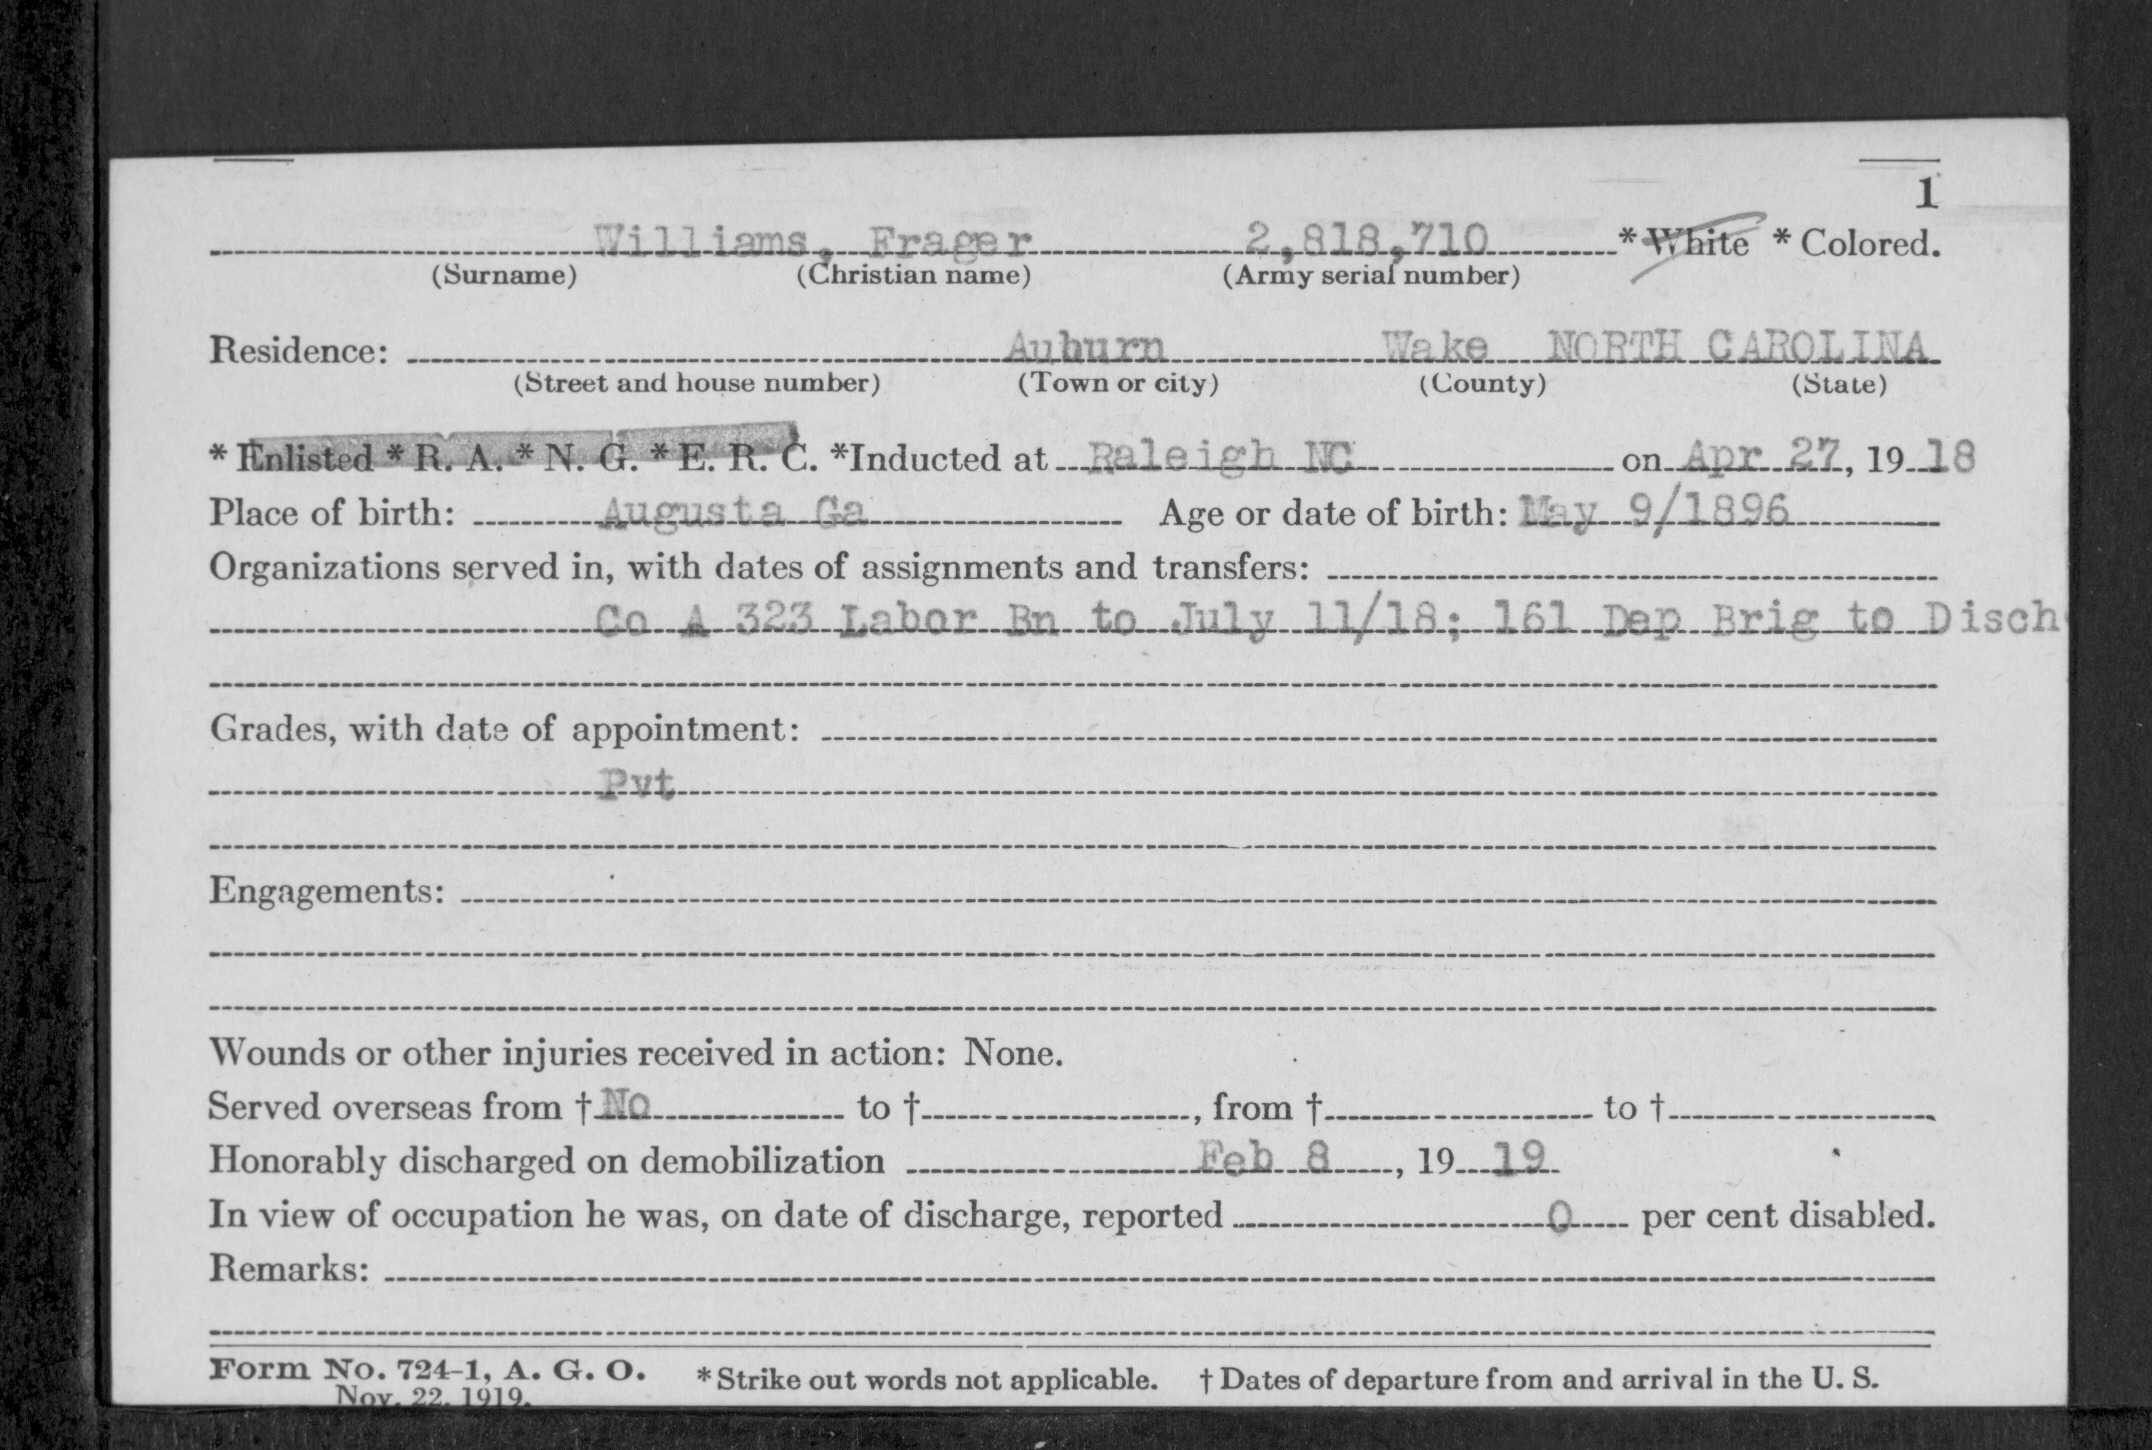 1
Williams, Frager 2,818,710 *White *Colored.
(Surname) (Christian name) (Army serial number)
Residence: Auburn Wake NORTH CAROLINA
(Street and house number) (Town or city) (County) (State)
*Enlisted *R. A. *N. G. *E. R. C. *Inducted at Raleigh NC on Apr 27, 19 18
Place of birth: Augusta Ga Age or date of birth: May 9/1896
Organizations served in, with dates of assignments and transfers:
Co A 323 Labor Bn to July 11/18; 161 Dep Brig to Disch
Grades, with date of appointment:
Pvt
Engagements:
Wounds or other injuries received in action: None.
Served overseas from † No to †, from † to †
Honorably discharged on demobilization Feb 8, 19 19
In view of occupation he was, on date of discharge, reported 0 per cent disabled.
Remarks:
Form No. 724-1, A. G. O. *Strike out words not applicable. † Dates of departure from and arrival in the U. S.
Nov. 22, 1919.